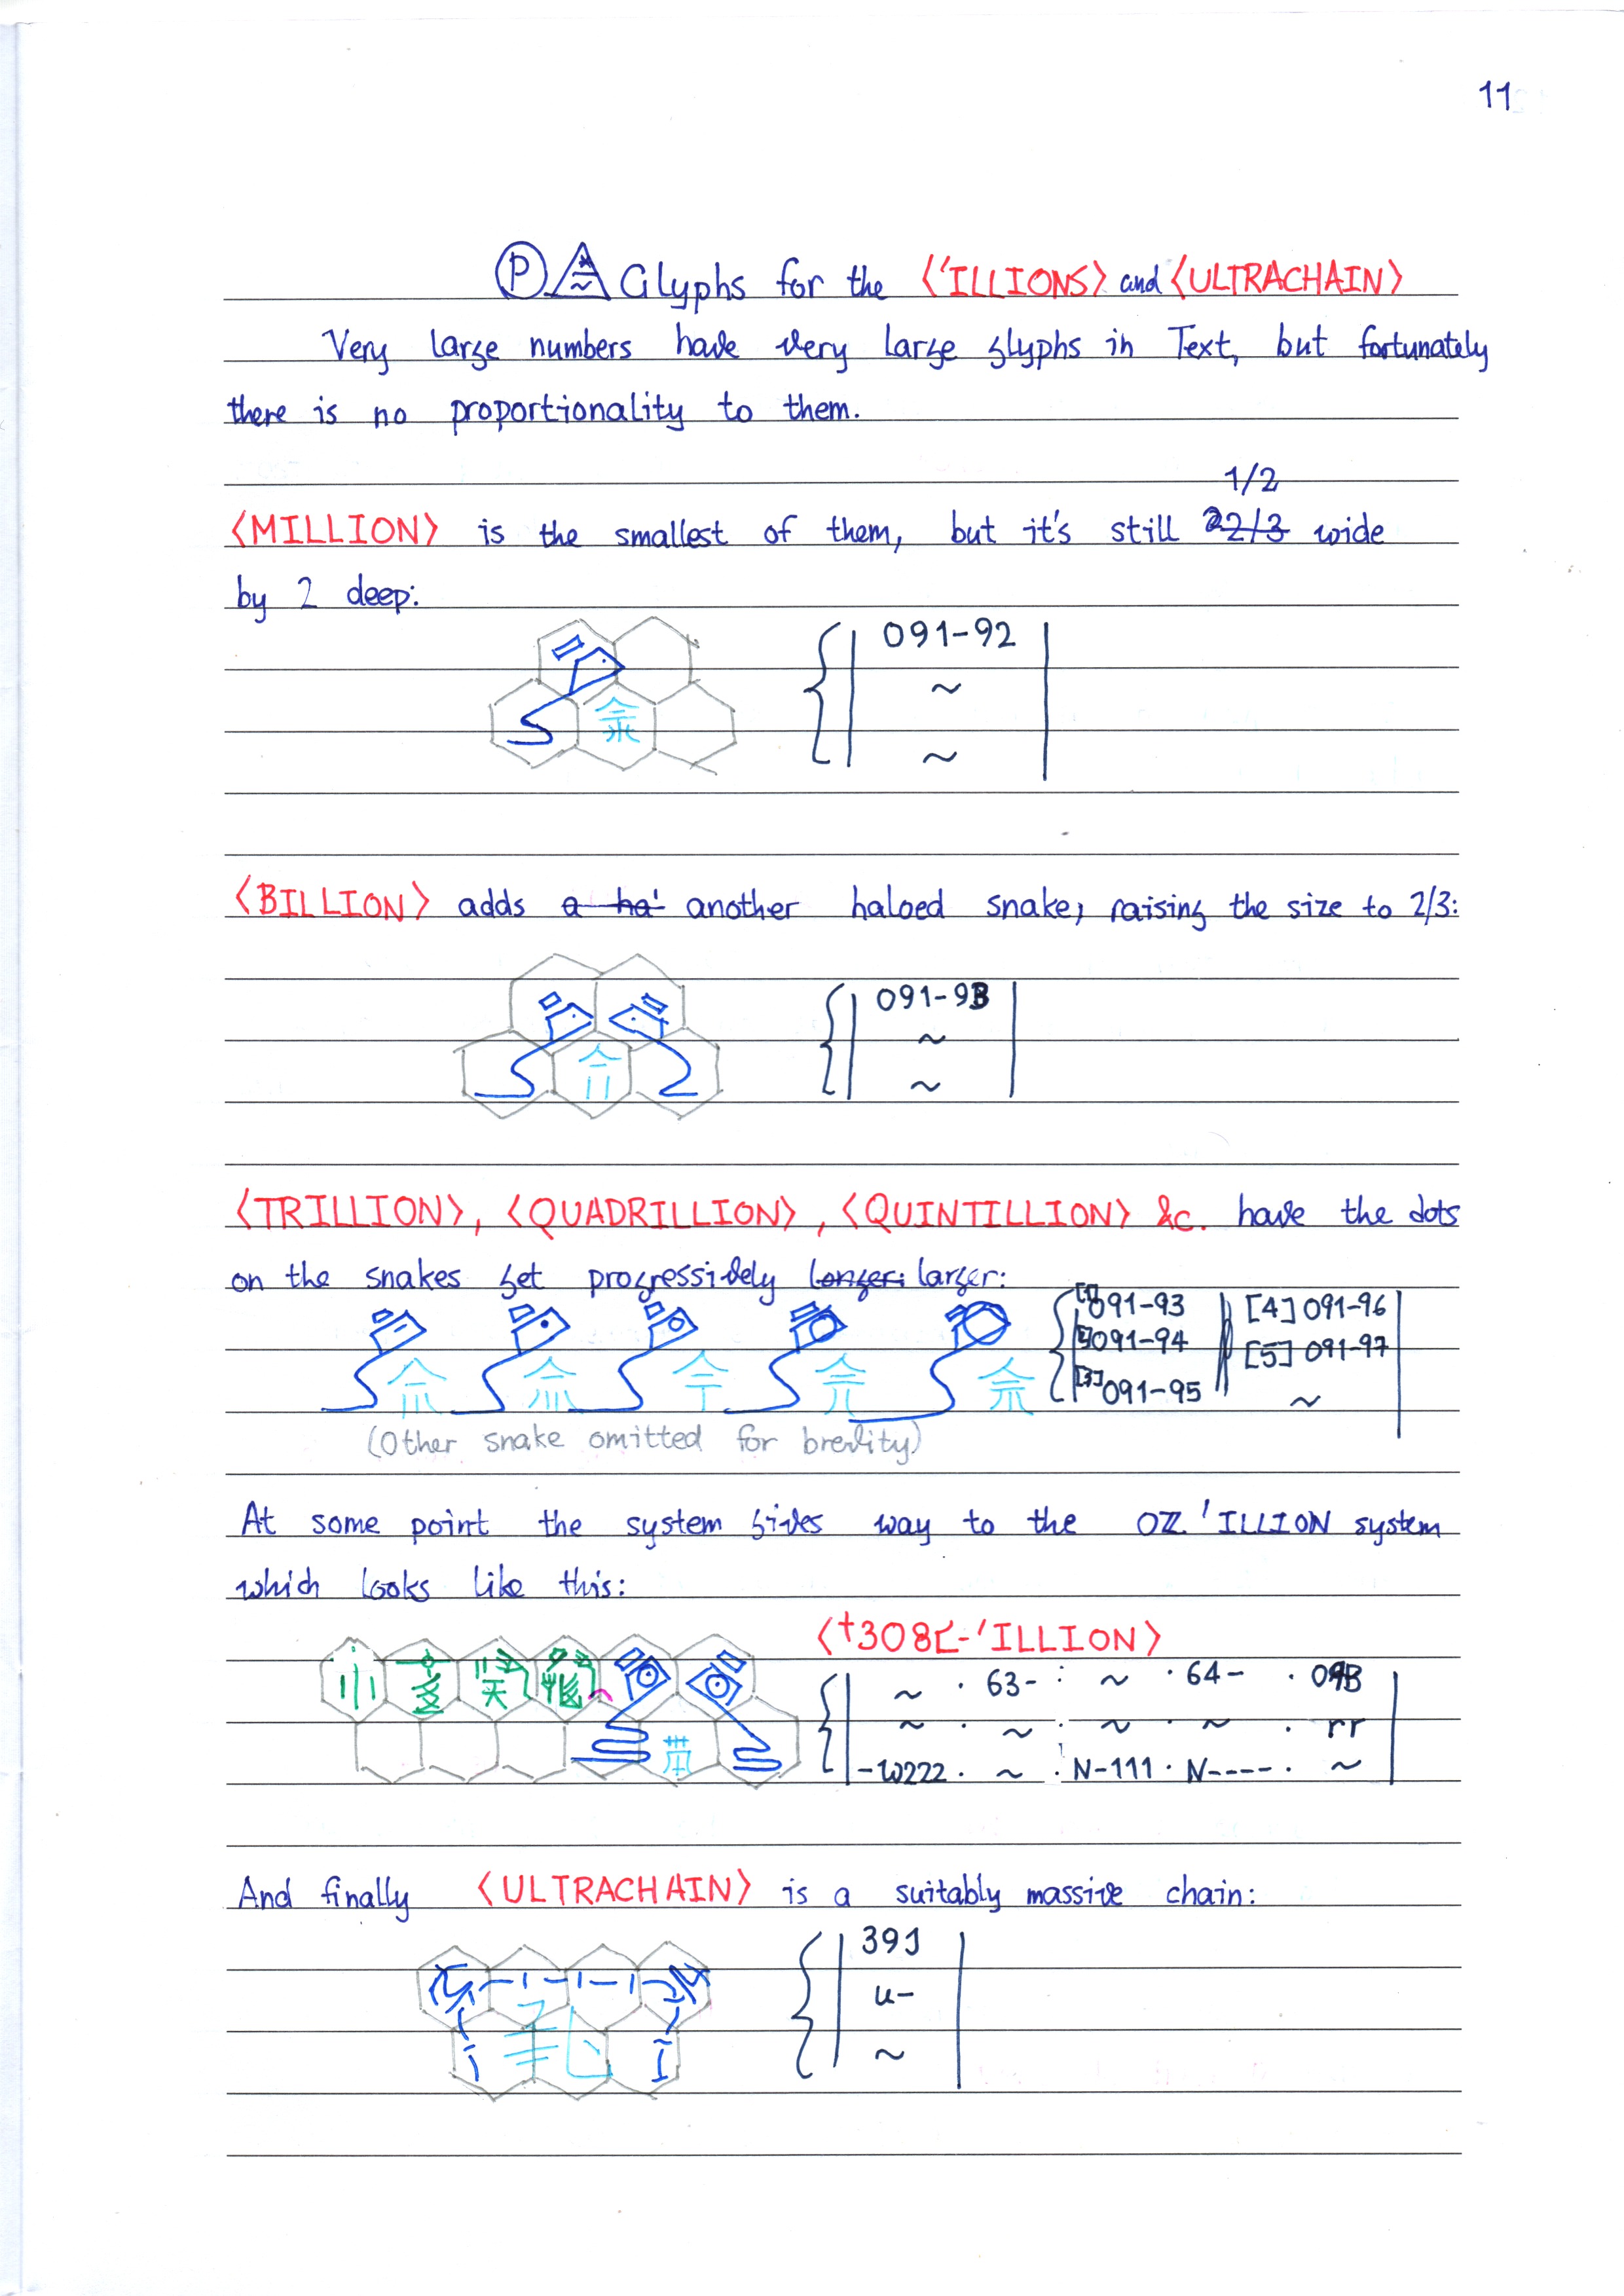 11
Ⓟ Glyphs for the 〈'ILLIONS〉 and 〈ULTRACHAIN〉
Very large numbers have very large glyphs in Text, but fortunately
there is no proportionality to them.
1/2
〈MILLION〉 is the smallest of them, but it's still 22/3 wide
by 2 deep:
091-92
~
~
〈BILLION〉 adds a ha' another haloed snake, raising the size to 2/3:
091-93
~
~
〈TRILLION〉, 〈QUADRILLION〉, 〈QUINTILLION〉 &c. have the dots
on the snakes get progressively longer: larger:
[1] 091-93 [4] 091-96
[2] 091-94 [5] 091-97
[3] 091-95 ~
(Other snake omitted for brevity)
At some point the system gives way to the 'ILLION system
which looks like this:
'ILLION〉
~ · 63- : ~ · 64- ·
~ · ~ : ~ · ~ · rr
-W222 · ~ : N-111 · N---- · ~
And finally 〈ULTRACHAIN〉 is a suitably massive chain:
391
u-
~